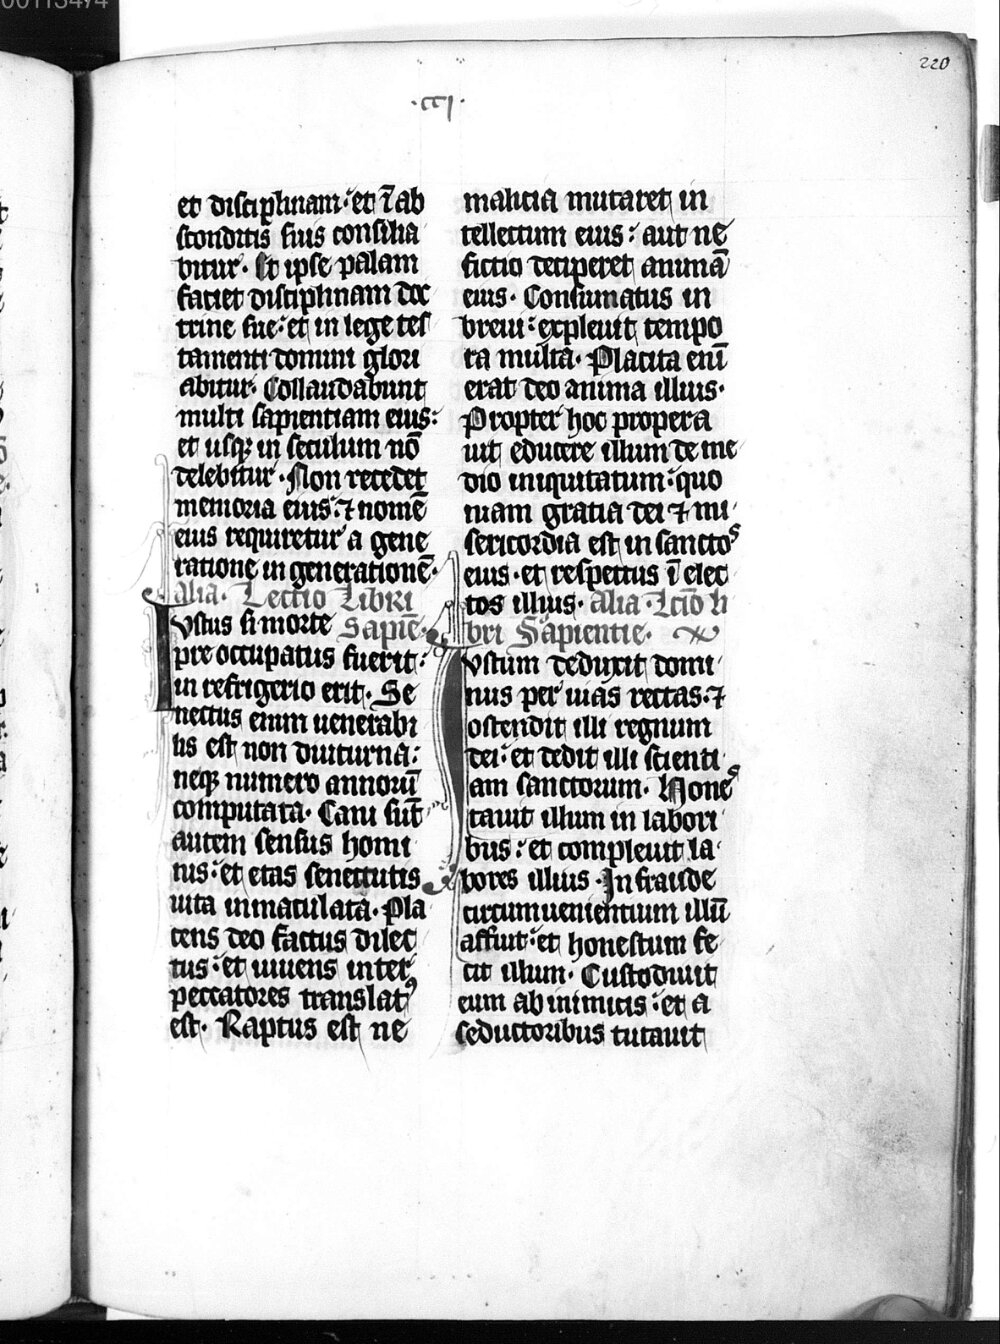 00113474
220
·CCI·
et disciplinam · et ī ab
sconditis suis consilia
bitur · Et ipse palam
faciet disciplinam doc
trine sue · et in lege tes
tamenti domini glori
abitur · Collaudabunt
multi sapientiam eius :
et usqꝫ in seculum nō
delebitur · Non recedet
memoria eius · ⁊ nomē
eius requiretur a gene
ratione in generationē ·
alia · Lectio Libri
Iustus si morte Sapiē ·
preoccupatus fuerit :
in refrigerio erit · Se
nectus enim uenerabi
lis est non diuturna :
neqꝫ numero annorū
computata · Cani sūt
autem sensus homi
nis · et etas senectutis
uita inmaculata · Pla
cens deo factus dilec
tus · et uiuens inter
peccatores translatꝰ
est · Raptus est ne
malicia mutaret in
tellectum eius : aut ne
fictio deciperet animā
eius · Consumatus in
breui · expleuit tempo
ra multa · Placita enī
erat deo anima illius ·
Propter hoc propera
uit educere illum de me
dio iniquitatum · quo
niam gratia dei ⁊ mi
sericordia est in sanctos
eius · et respectus ī elec
tos illius · alia · Lcīo li
bri Sapientie ·
Iustum deduxit domi
nus per uias rectas · ⁊
ostendit illi regnum
dei · et dedit illi scienti
am sanctorum · Hones
tauit illum in labori
bus : et compleuit la
bores illius · In fraude
circumuenientium illū
affuit · et honestum fe
cit illum · Custodiuit
eum ab inimicis · et a
seductoribus tutauit